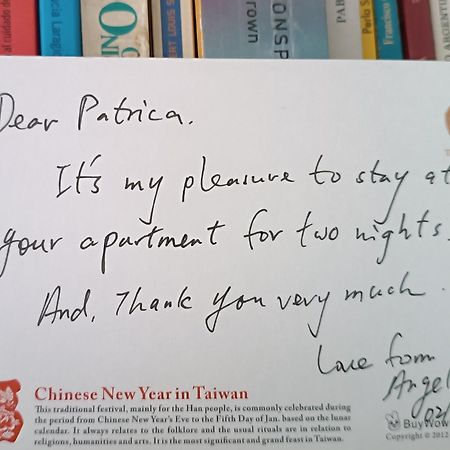 Brown
CONSP
Dear Patrica.
It's my pleasure to stay at
your apartment for two nights.
And, Thank you very much.
Love from
Angel
02/
Chinese New Year in Taiwan
This traditional festival, mainly for the Han people, is commonly celebrated during
the period from Chinese New Year's Eve to the Fifth Day of Jan. based on the lunar
calendar. It always relates to the folklore and the usual rituals are in relation to
religions, humanities and arts. It is the most significant and grand feast in Taiwan.
BuyWow
Copyright © 2012